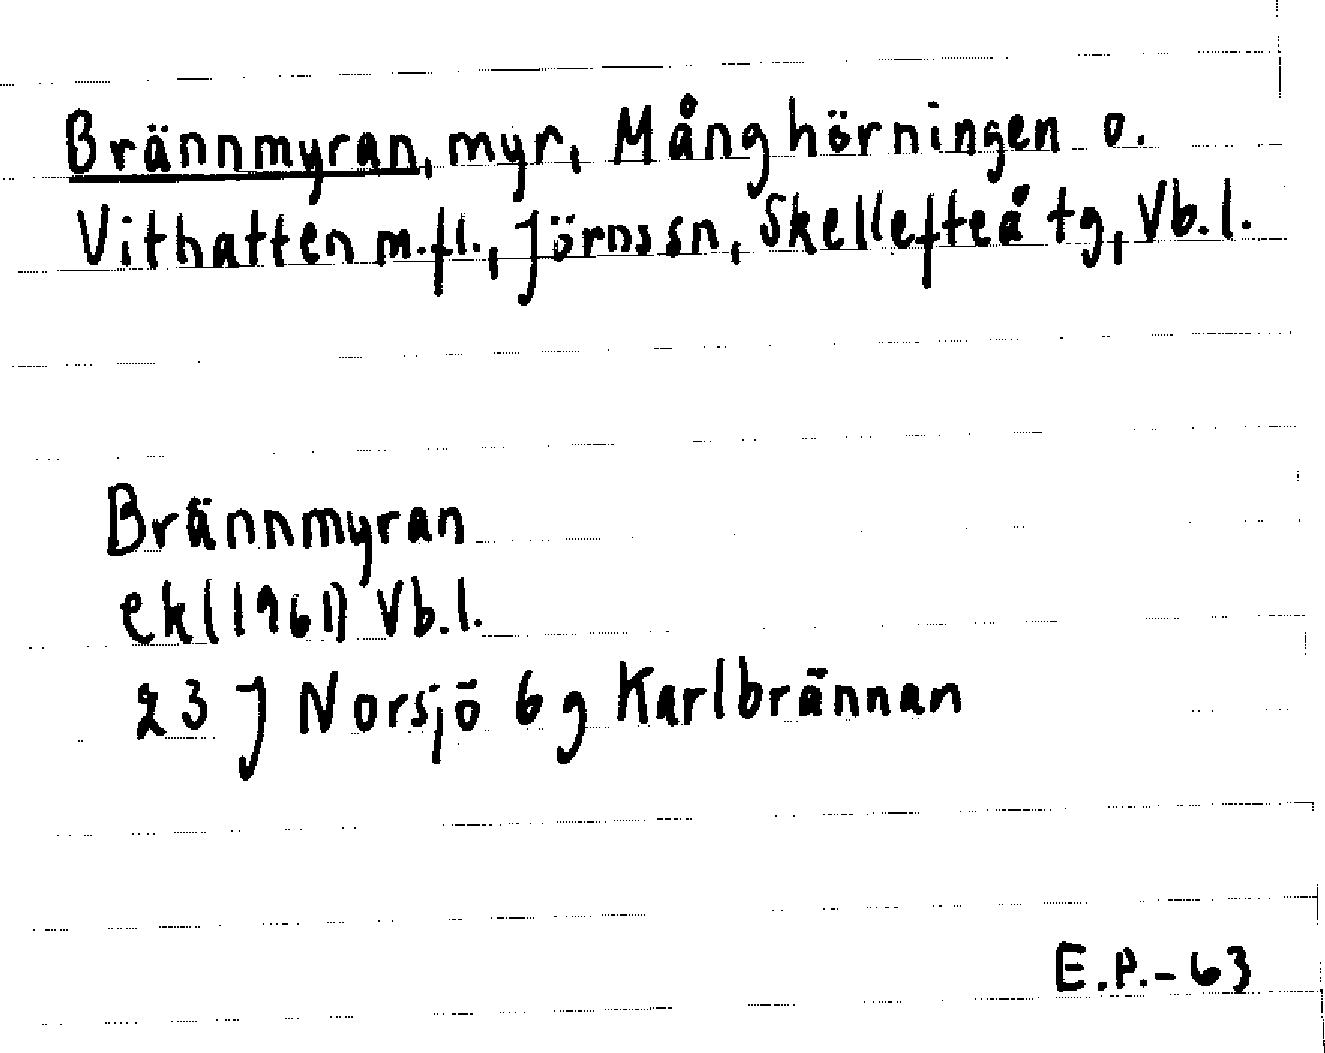 Brännmyran, myr, Månghörningen o.
Vithatten m.fl., Jörns sn, Skellefteå tg, Vb.l.
Brännmyran
ek (1961) Vb.l.
23 J Norsjö 6g Karlbrännan
E.P.-63